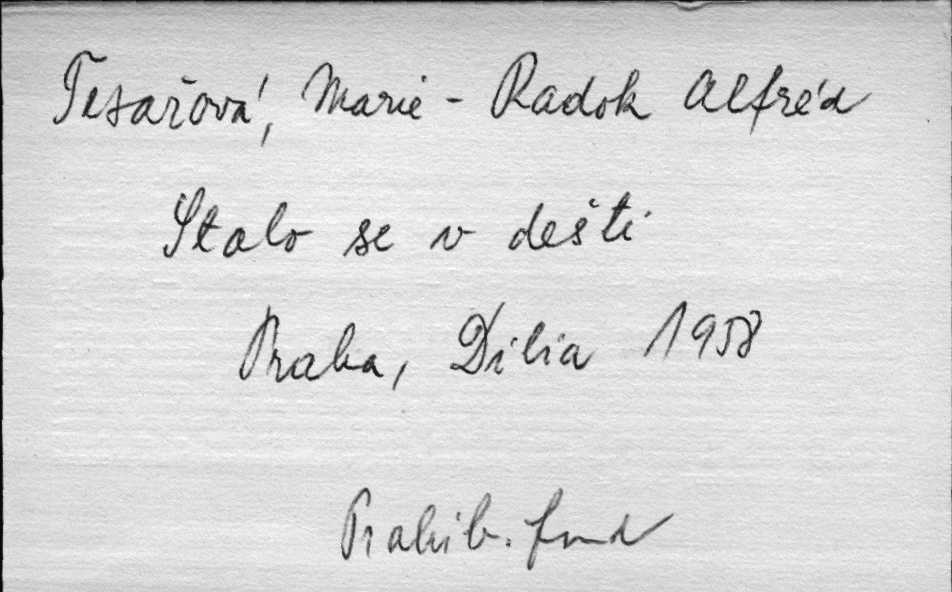 Tesařová, Marie - Radok Alfréd
Stalo se v dešti
Praha, Dilia 1958
Prohib. fond